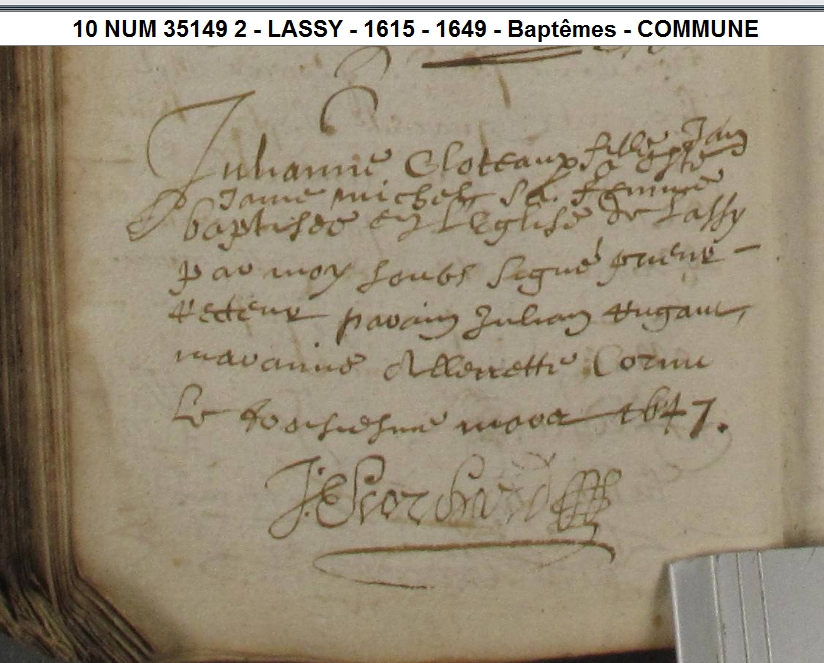 10 NUM 35149 2 - LASSY - 1615 - 1649 - Baptêmes - COMMUNE
Julianne Cloteaux fille Jan
Jame michel sa femme a esté
baptisée en L'Eglise de Lassy
par moy soubs signé prieur -
Recteur parain Julian
maranne Cornu
Le troisiesme 1647.